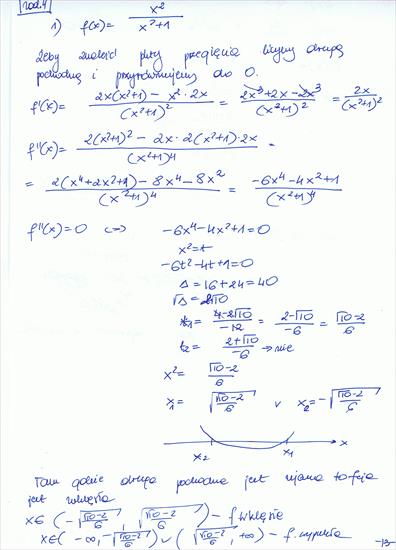 zad. 4
1) f(x) = x² / (x²+1)
Żeby znaleźć pkty przegięcia liczymy drugą
pochodną i przyrównujemy do 0.
f'(x) = (2x(x²+1) - x²·2x) / (x²+1)² = (2x³+2x-2x³) / (x²+1)² = 2x / (x²+1)²
f''(x) = (2(x²+1)² - 2x·2(x²+1)·2x) / (x²+1)⁴ =
= (2(x⁴+2x²+1) - 8x⁴ - 8x²) / (x²+1)⁴ = (-6x⁴-4x²+1) / (x²+1)⁴
f''(x) = 0 <=> -6x⁴-4x²+1=0
x²=t
-6t²-4t+1=0
Δ = 16+24 = 40
√Δ = 2√10
t₁ = (4-2√10)/-12 = (2-√10)/-6 = (√10-2)/6
t₂ = (2+√10)/-6 → nie
x² = (√10-2)/6
x₁ = √((√10-2)/6) v x₂ = -√((√10-2)/6)
x₂ x₁ x
Tam gdzie druga pochodna jest ujemna to fcja
jest wklęsła
x∈ (-√((√10-2)/6), √((√10-2)/6)) - f wklęsła
x∈(-∞, -√((√10-2)/6)) ∪ (√((√10-2)/6), +∞) - f. wypukła